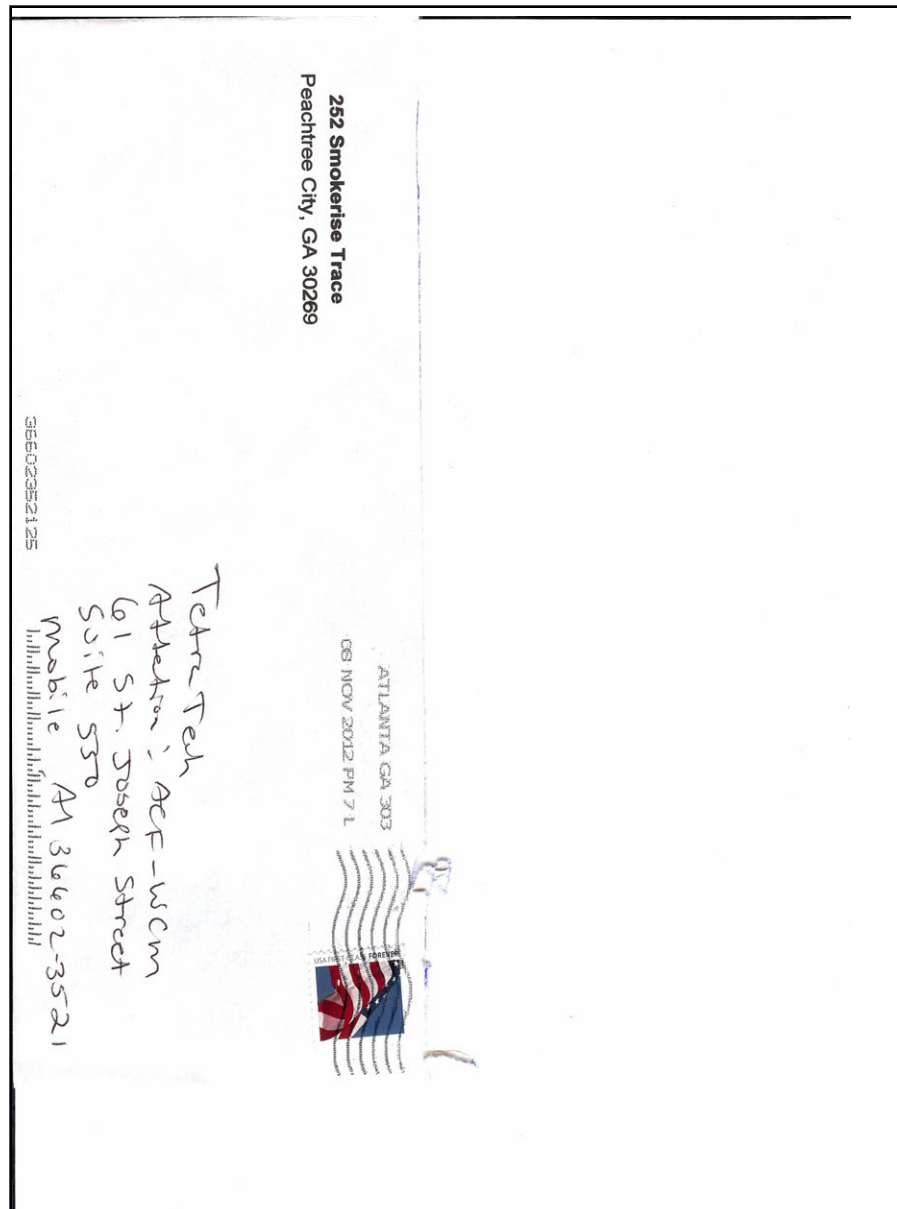 252 Smokerise Trace
Peachtree City, GA 30269
ATLANTA GA 303
08 NOV 2012 PM 7 L
USA FIRST-CLASS FOREVER
Tetra Tech
Attention: ACF-WCM
61 St. Joseph Street
Suite 550
Mobile Al 36602-3521
36602352125